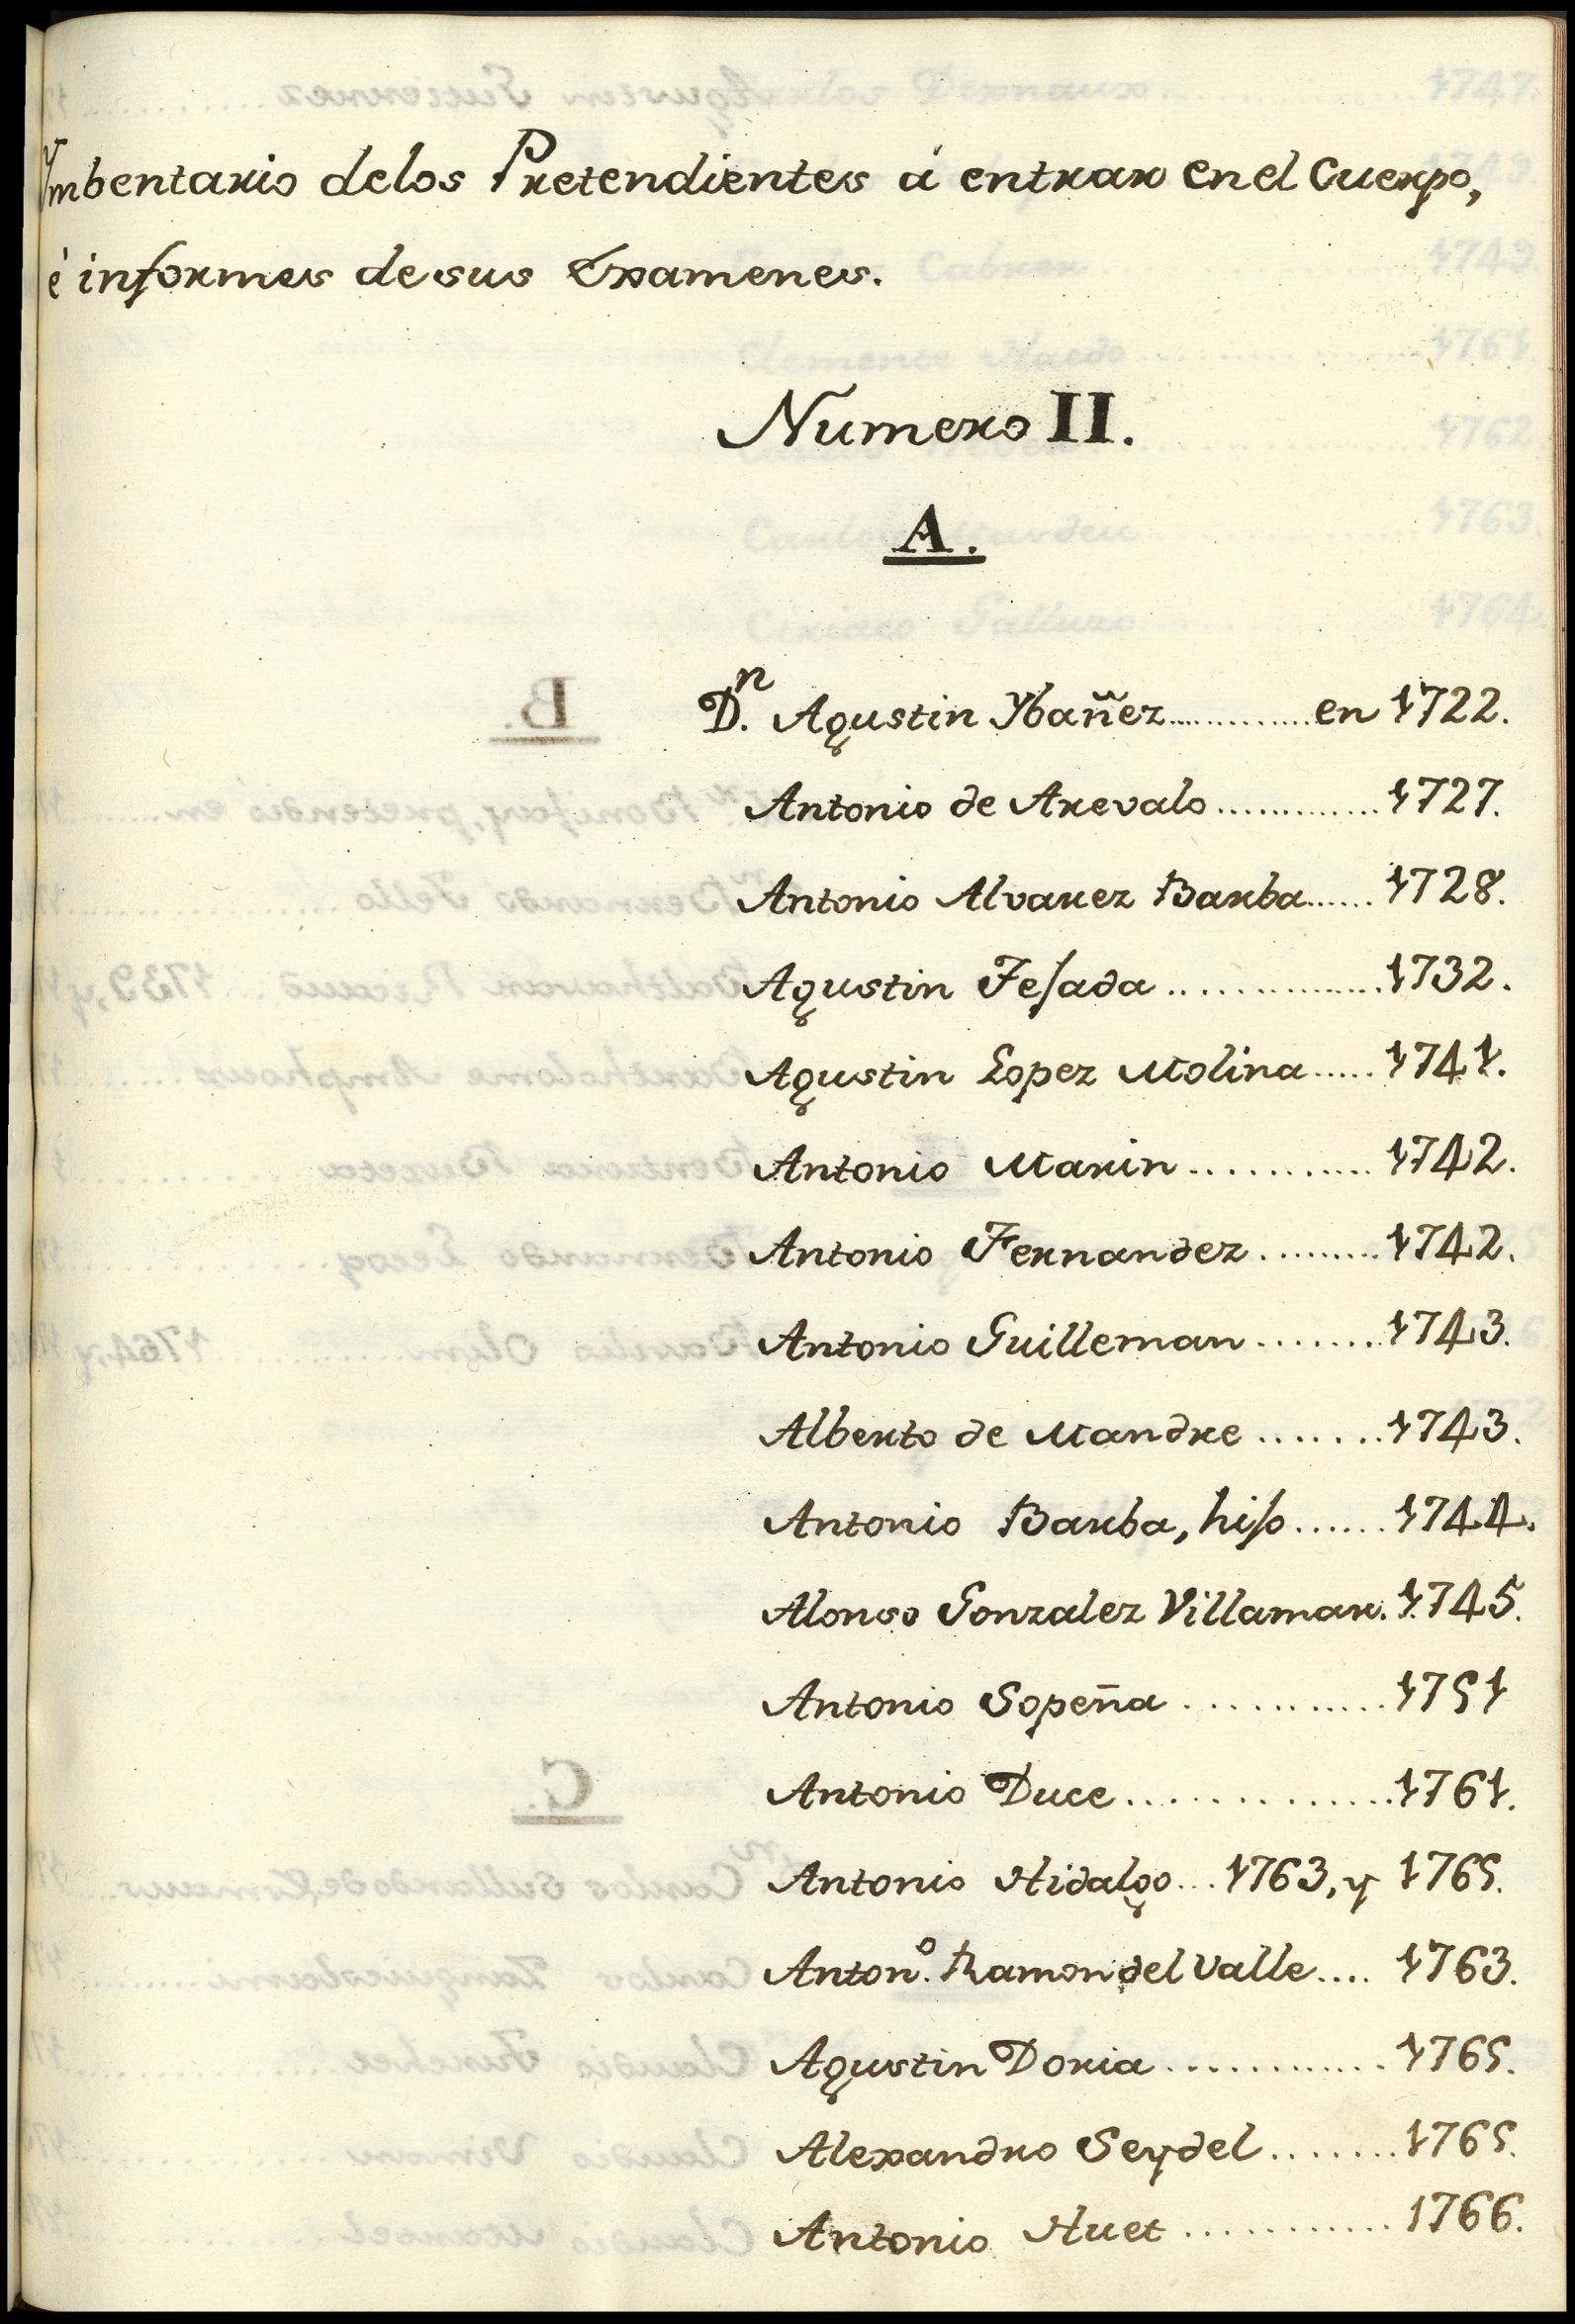 Ymbentario delos Pretendientes á entrar en el Cuerpo,
é informes de sus Examenes.
Numero II.
A.
Dn. Agustin Ybañez............en 1722.
Antonio de Arevalo............1727.
Antonio Alvarez Barba......1728.
Agustin Tejada...............1732.
Agustin Lopez Molina.....1741.
Antonio Marin...........1742.
Antonio Fernandez.........1742.
Antonio Guilleman........1743.
Alberto de Mandre.......1743.
Antonio Barba, hijo......1744.
Alonso Gonzalez Villamar. 1745.
Antonio Sopeña...........1751
Antonio Duce..............1761.
Antonio Hidalgo...1763, y 1765.
Antono. Ramon del Valle....1763.
Agustin Doria............1765.
Alexandro Seydel.......1765.
Antonio Huet...........1766.